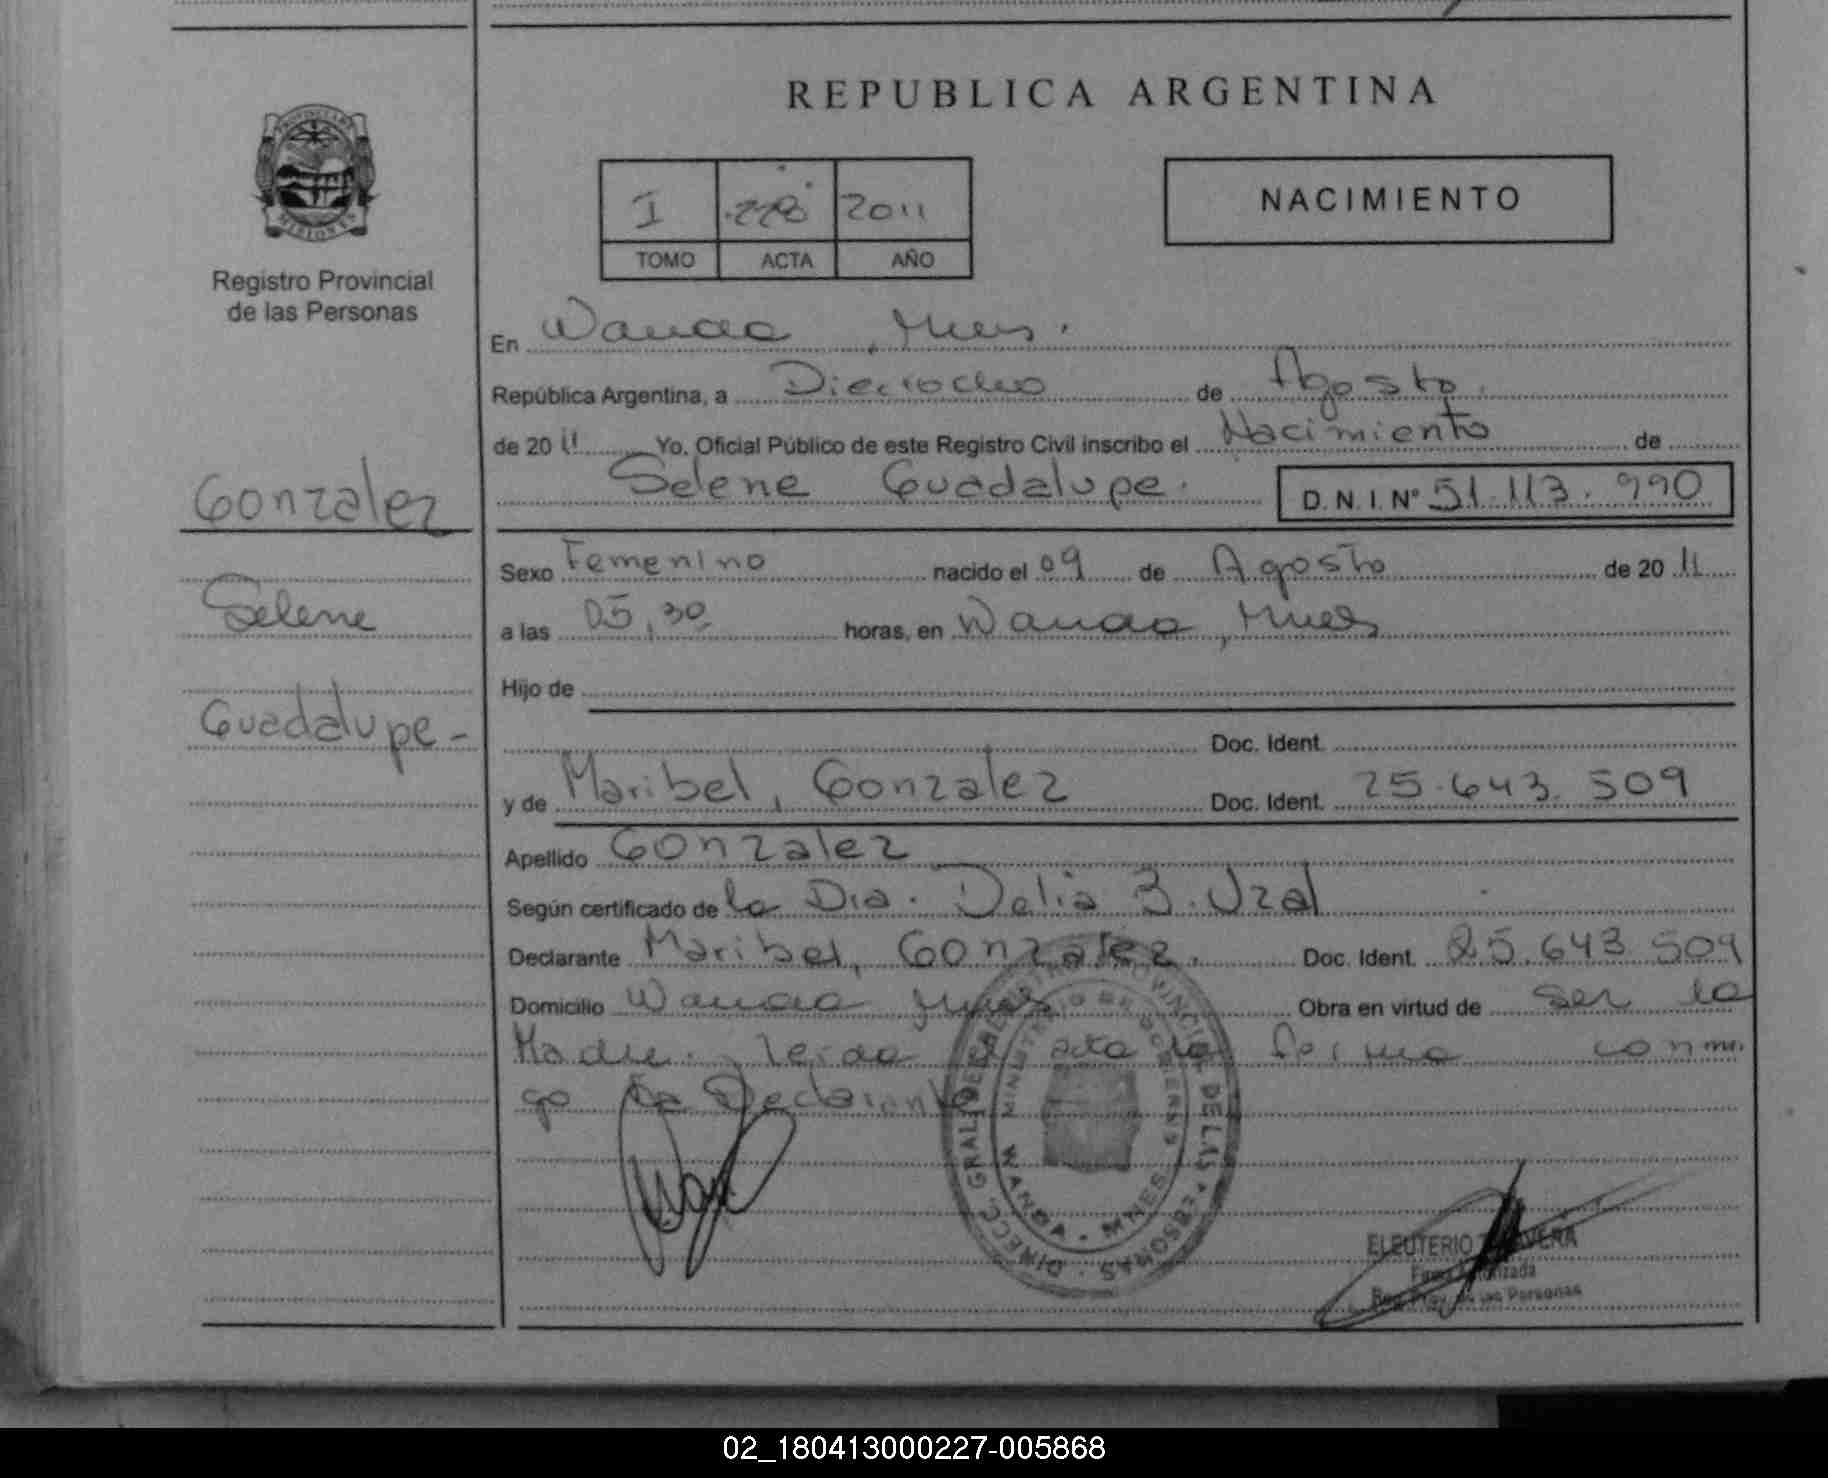 REPUBLICA ARGENTINA
PROVINCIA DE
MISIONES
Registro Provincial
de las Personas
I 2011
TOMO ACTA AÑO
NACIMIENTO
En Wanda, Mnes.
República Argentina, a Dieciocho de Agosto.
de 20 11 Yo, Oficial Público de este Registro Civil inscribo el Nacimiento de
Selene Guadalupe. D.N.I. Nº 51.113.990
Gonzalez
Selene
Guadalupe-
Sexo Femenino nacido el 09 de Agosto de 20 11
a las 05,30 horas, en Wanda, Mnes
Hijo de
Doc. Ident.
y de Maribel, Gonzalez Doc. Ident. 25.643.509
Apellido Gonzalez
Según certificado de la Dra. Delia B. Uzal
Declarante Maribel, Gonzalez. Doc. Ident. 25.643.509
Domicilio Wanda Mnes Obra en virtud de ser la
Madre. leida el acta la firma conmi
go la Declarante
DIRECC. GRAL. DEL REG. PROVINCIAL DE LAS PERSONAS
MINISTERIO DE GOBIERNO
WANDA - MNES
ELEUTERIO TALAVERA
Firma Autorizada
Reg. Prov. de las Personas
02_180413000227-005868